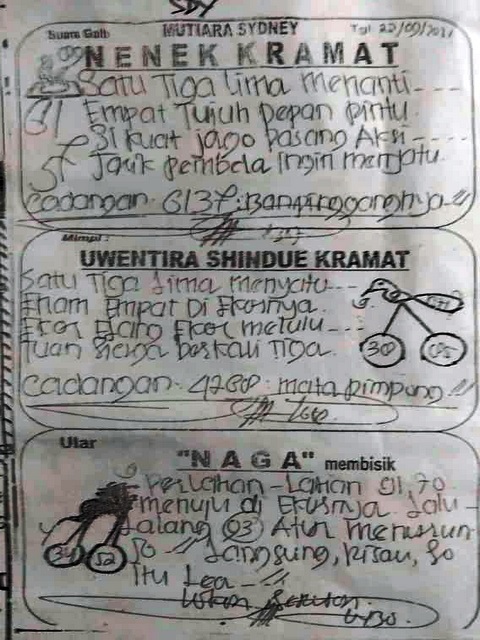 SDY
Suara Gaib MUTIARA SYDNEY Tgl 22/09/2021
NENEK KRAMAT
Satu Tiga lima menanti----
61 Empat Tujuh Depan pintu.
Si kuat jago pasang Aksi----
57 Tarik pembela Ingin menjatu.
Cadangan. 6137:
Mimpi:
UWENTIRA SHINDUE KRAMAT
Satu Tiga Lima menyatu---
Enam Empat Di Ekornya.
Ekor Elang Ekor melulu---
Tuan Siaga Berkali Tiga.
30 05
Cadangan. 4260: mata pimpong.!!
Ular
"NAGA" membisik
Perlahan-Lahan 01.70
menuju di Ekornya Lalu-
Lalang 03 Atur menyusun
Langsung, Risau, So
Itu Lea
34 52